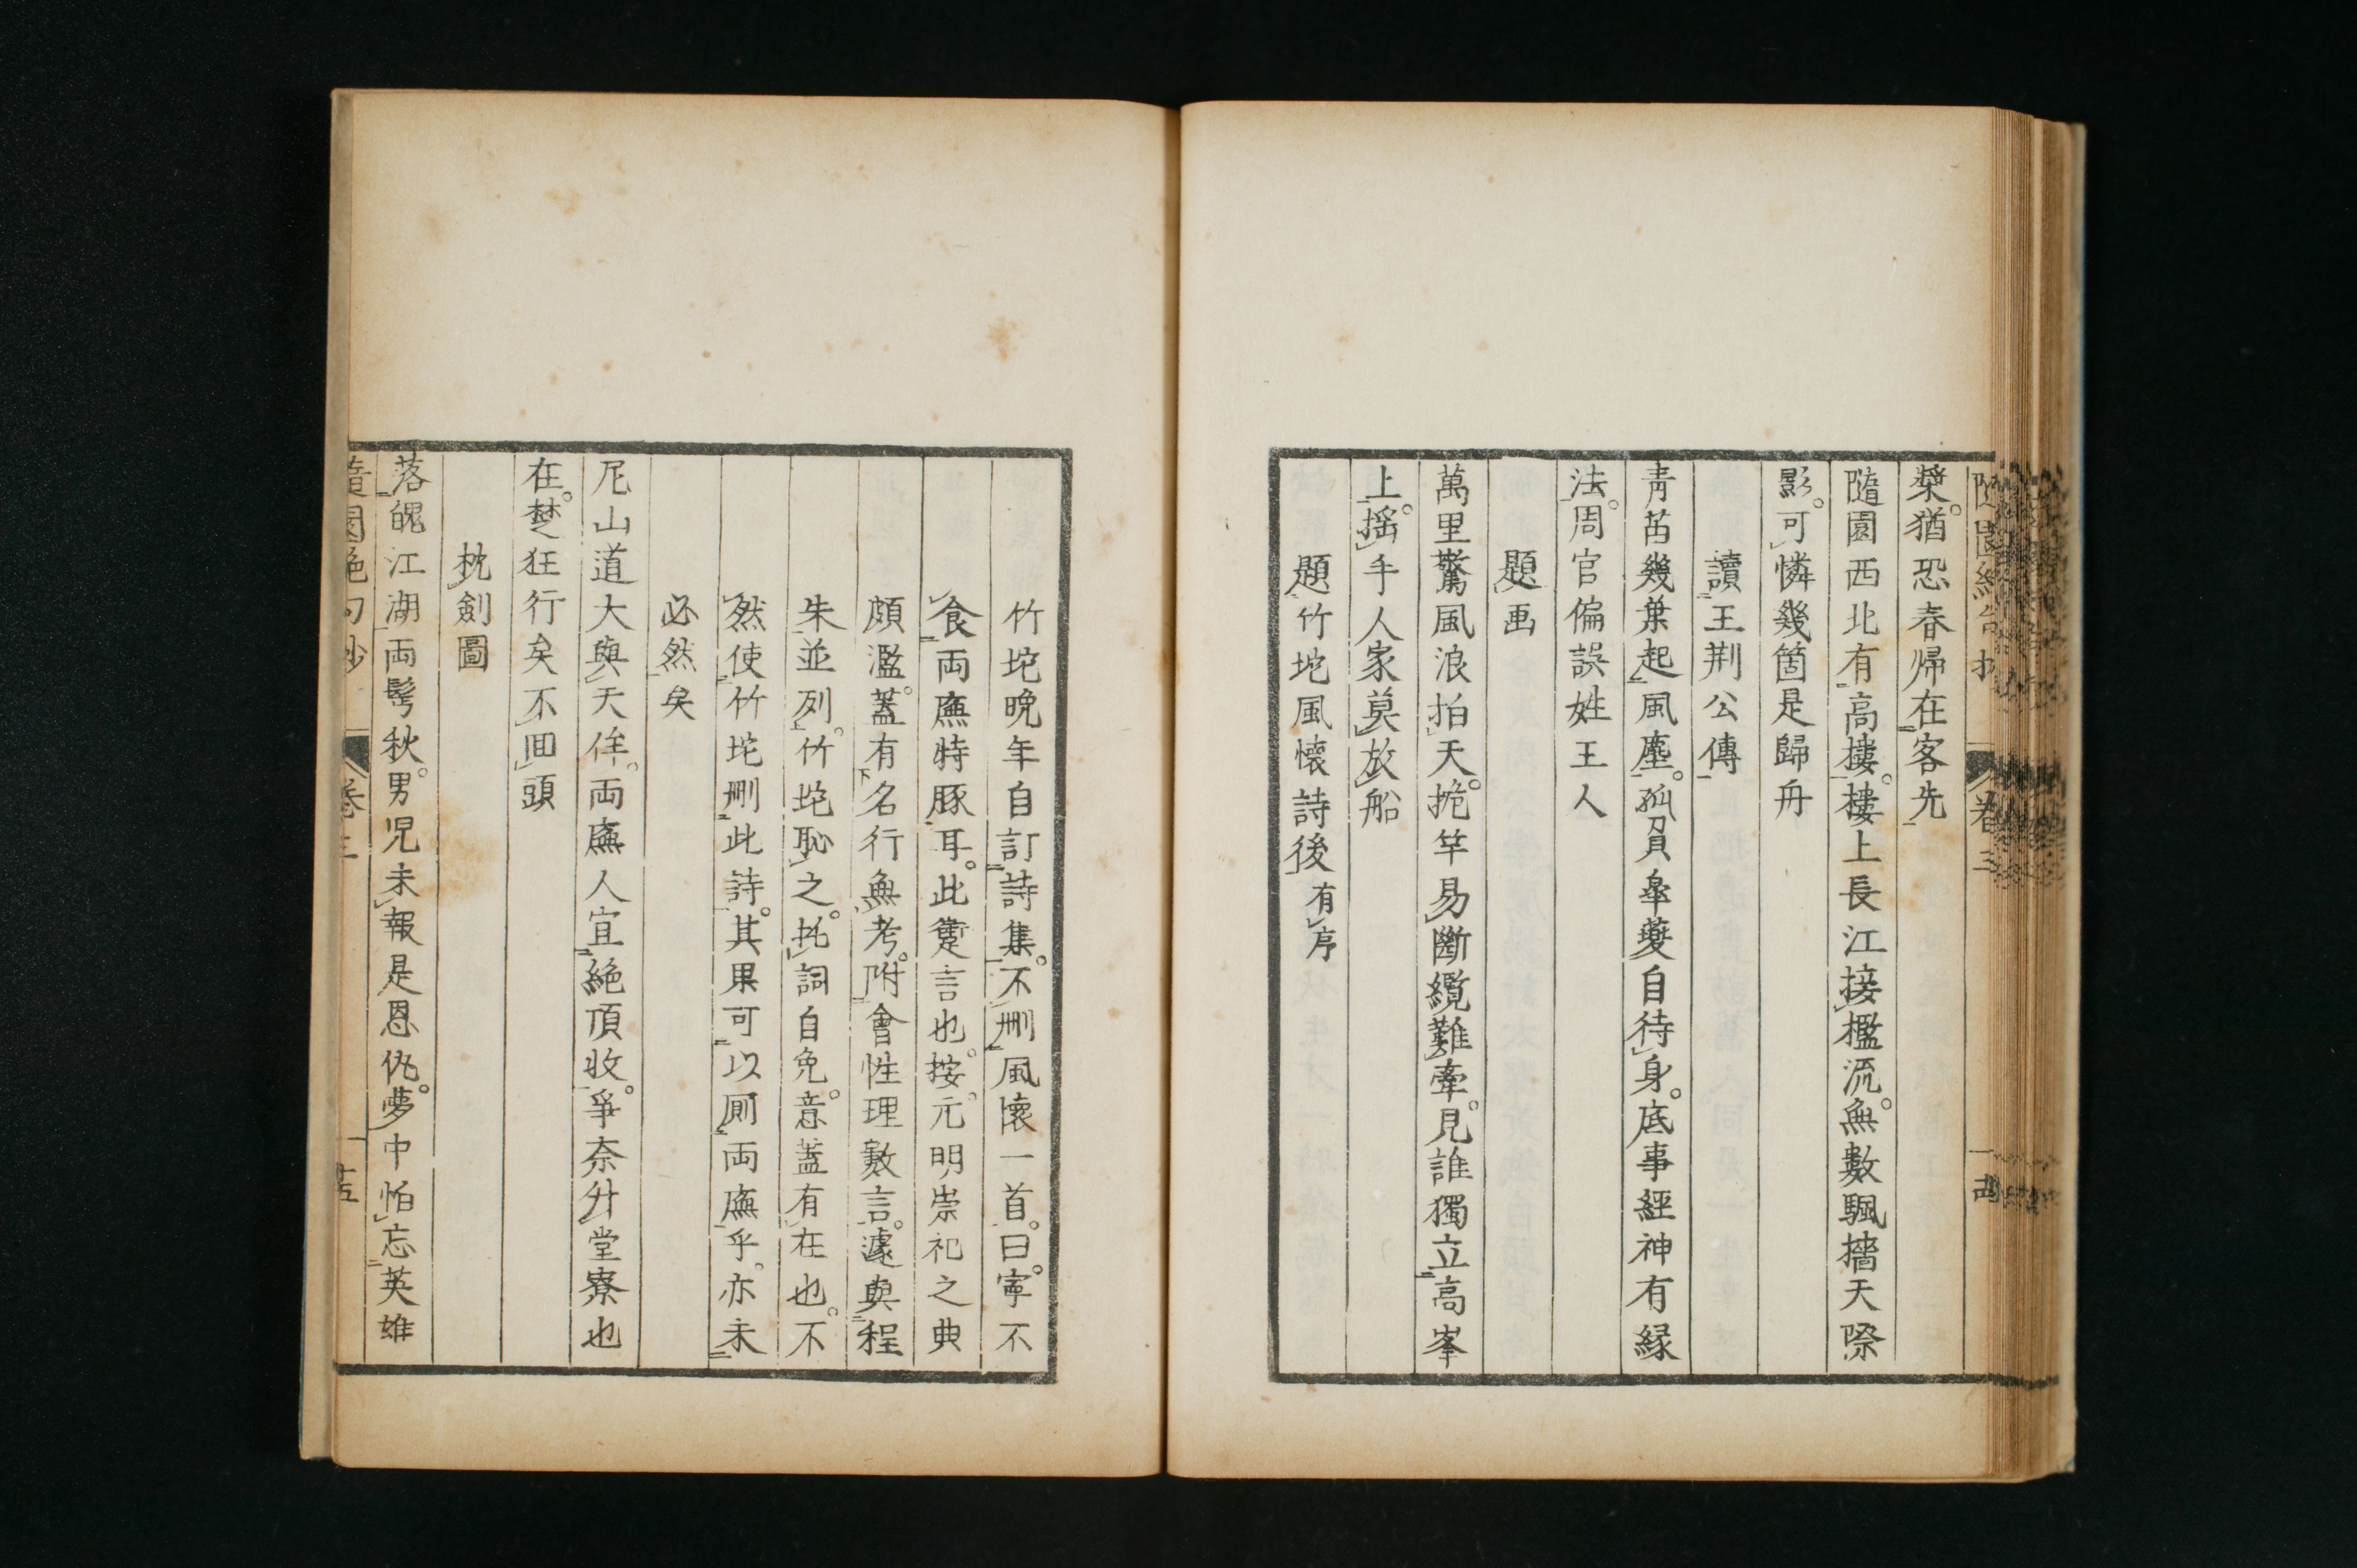 槳猶恐春帰在客先
隨園西北有高樓樓上長江接檻流無數颿檣天際
影可憐幾箇是歸舟
讀王荆公傳
青苗幾葉起風塵孤負皋夔自待身底事經神有縁
法周官偏誤姓王人
題画
萬里驚風浪拍天桅竿易斷纜難牽見誰獨立高峯
上揺手人家莫放船
題竹垞風懐詩後有序
竹垞晩年自訂詩集不刪風懐一首曰寧不
食両廡特豚耳此躗言也按元明崇祀之典
頗濫蓋有名行無考附會性理數言遽與程
朱並列竹垞恥之托詞自免意蓋有在也不
然使竹垞刪此詩其果可以厠両廡乎亦未
必然矣
尼山道大與天侔両廡人宜絶頂收爭奈升堂寮也
在楚狂行矣不回頭
枕劍圖
落魄江湖両髩秋男児未報是恩仇夢中怕忘英雄
卷三